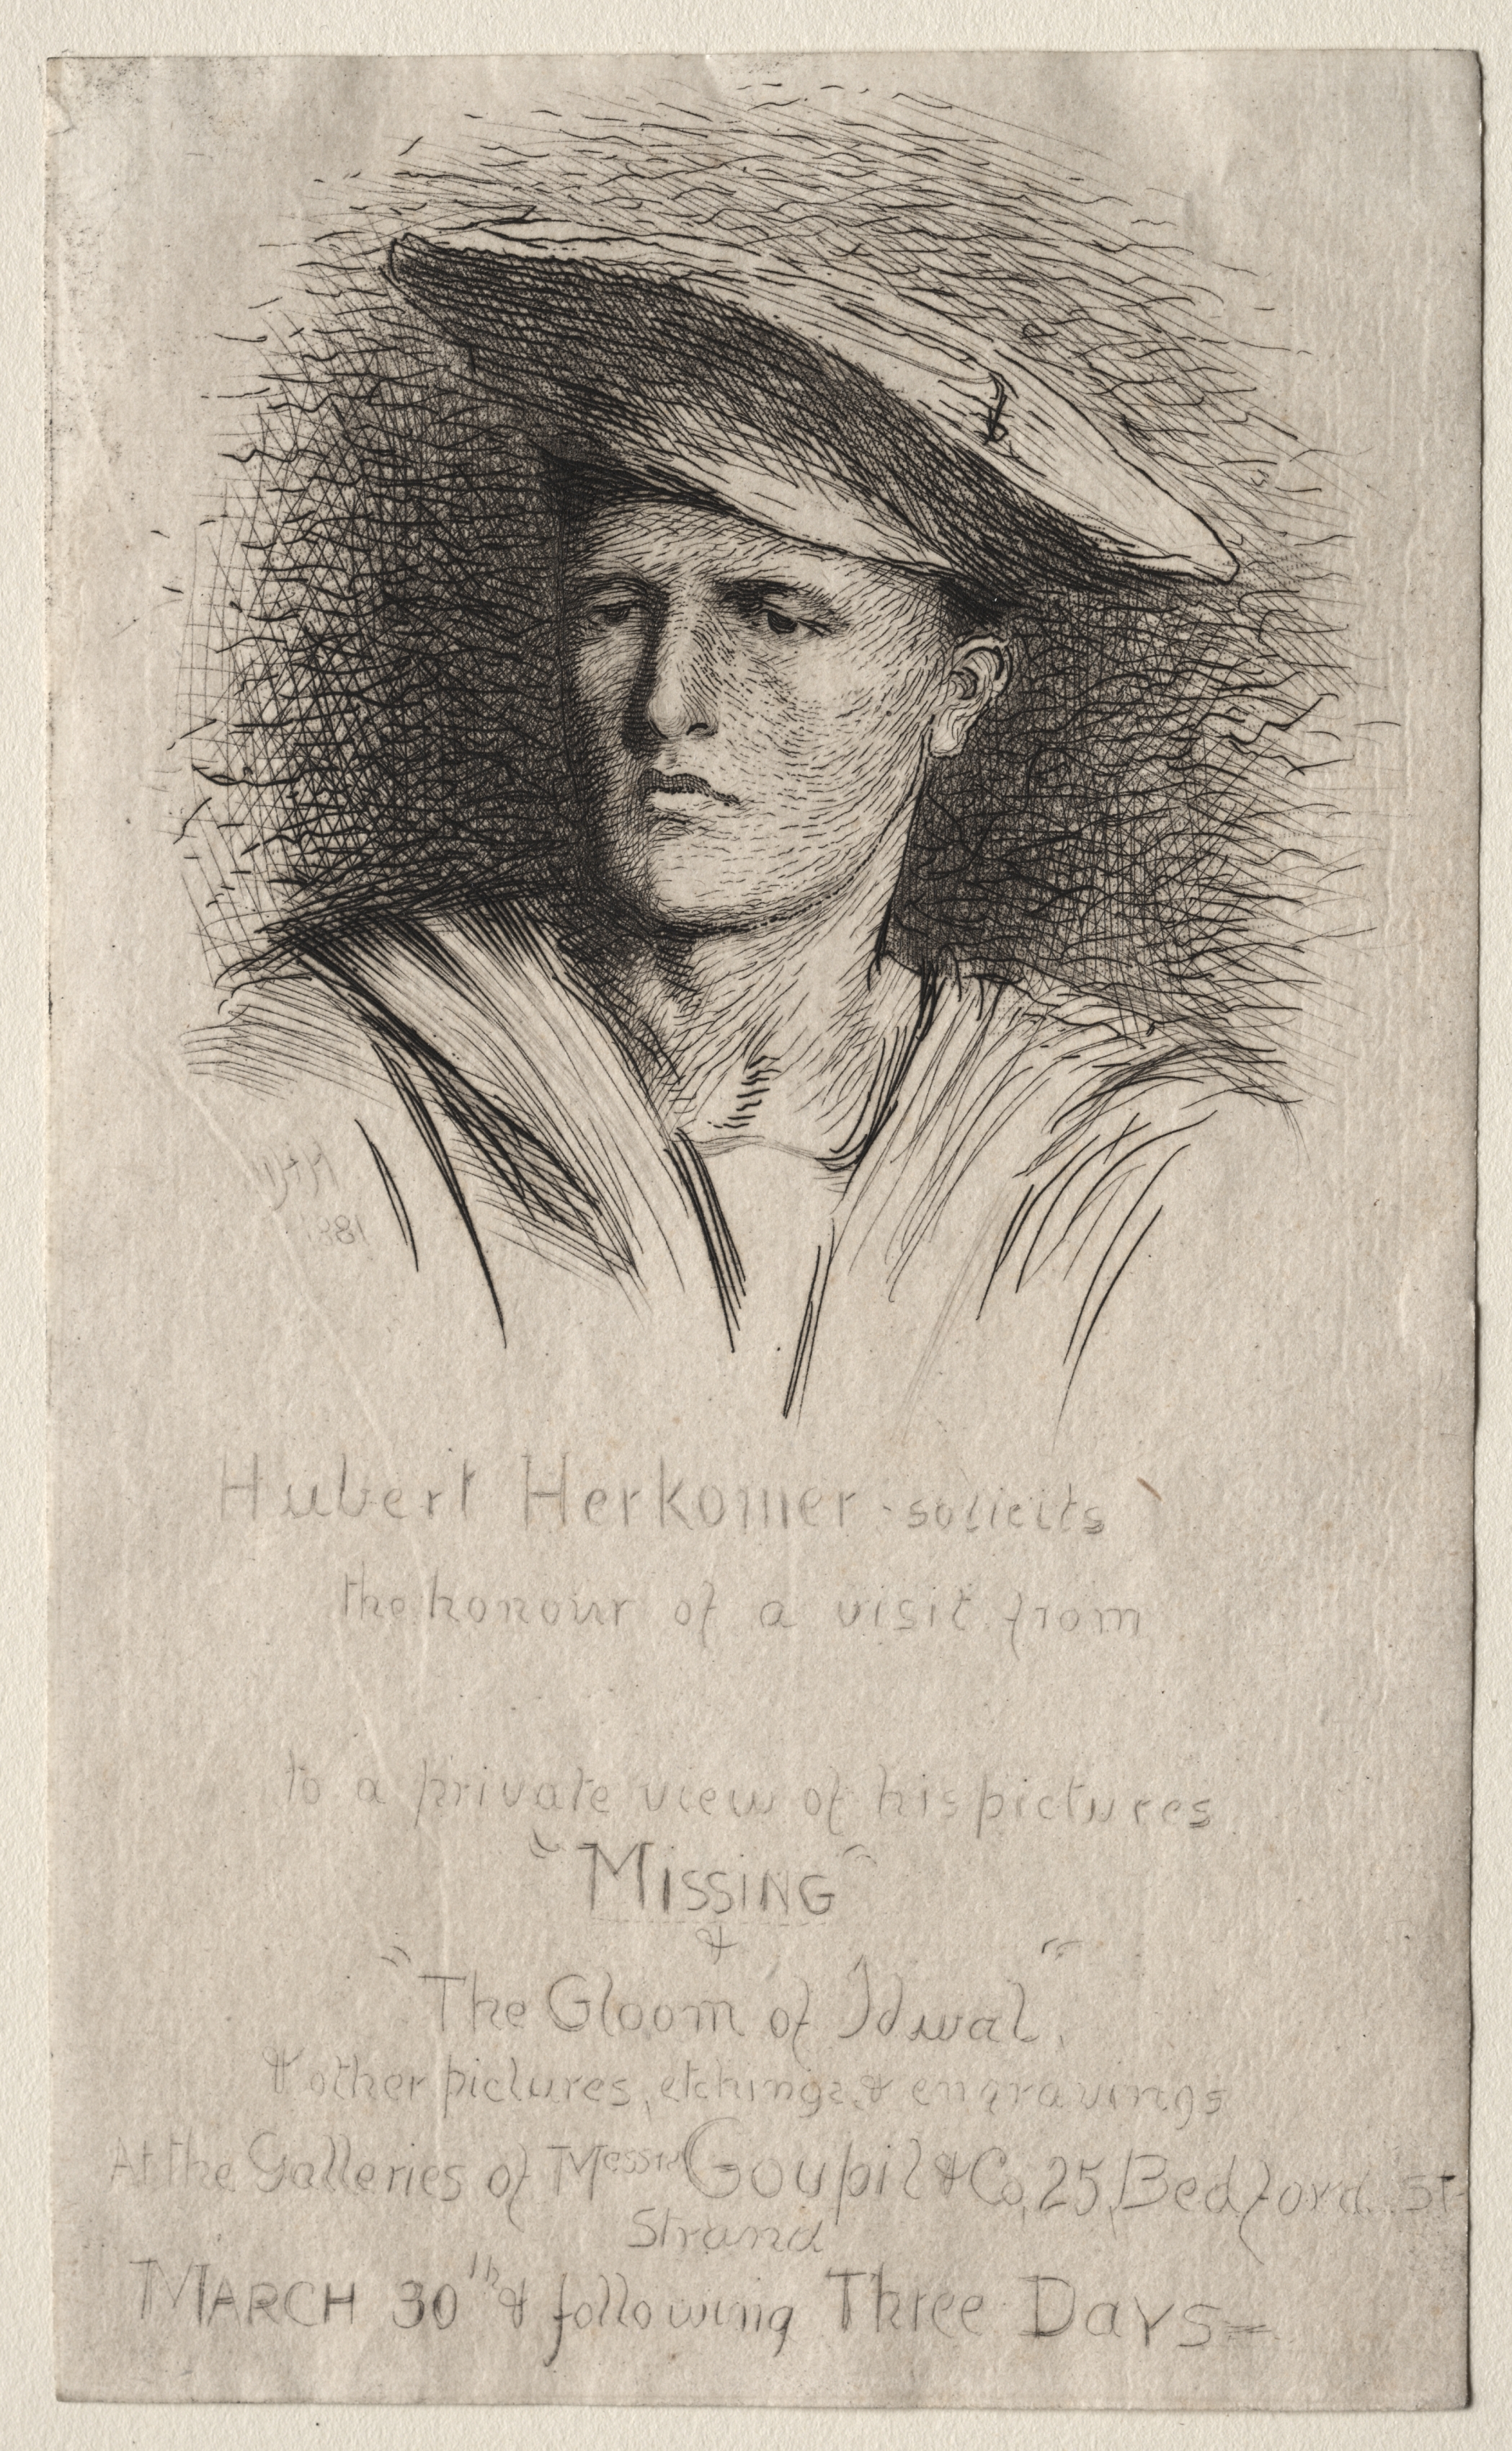 1881
Hubert Herkomer solicits
the honour of a visit from
to a private view of his pictures
"Missing"
&
"The Gloom of Idwal"
& other pictures, etchings & engravings
At the Galleries of Messrs Goupil & Co, 25, Bedford St
Strand
MARCH 30th & following Three Days=